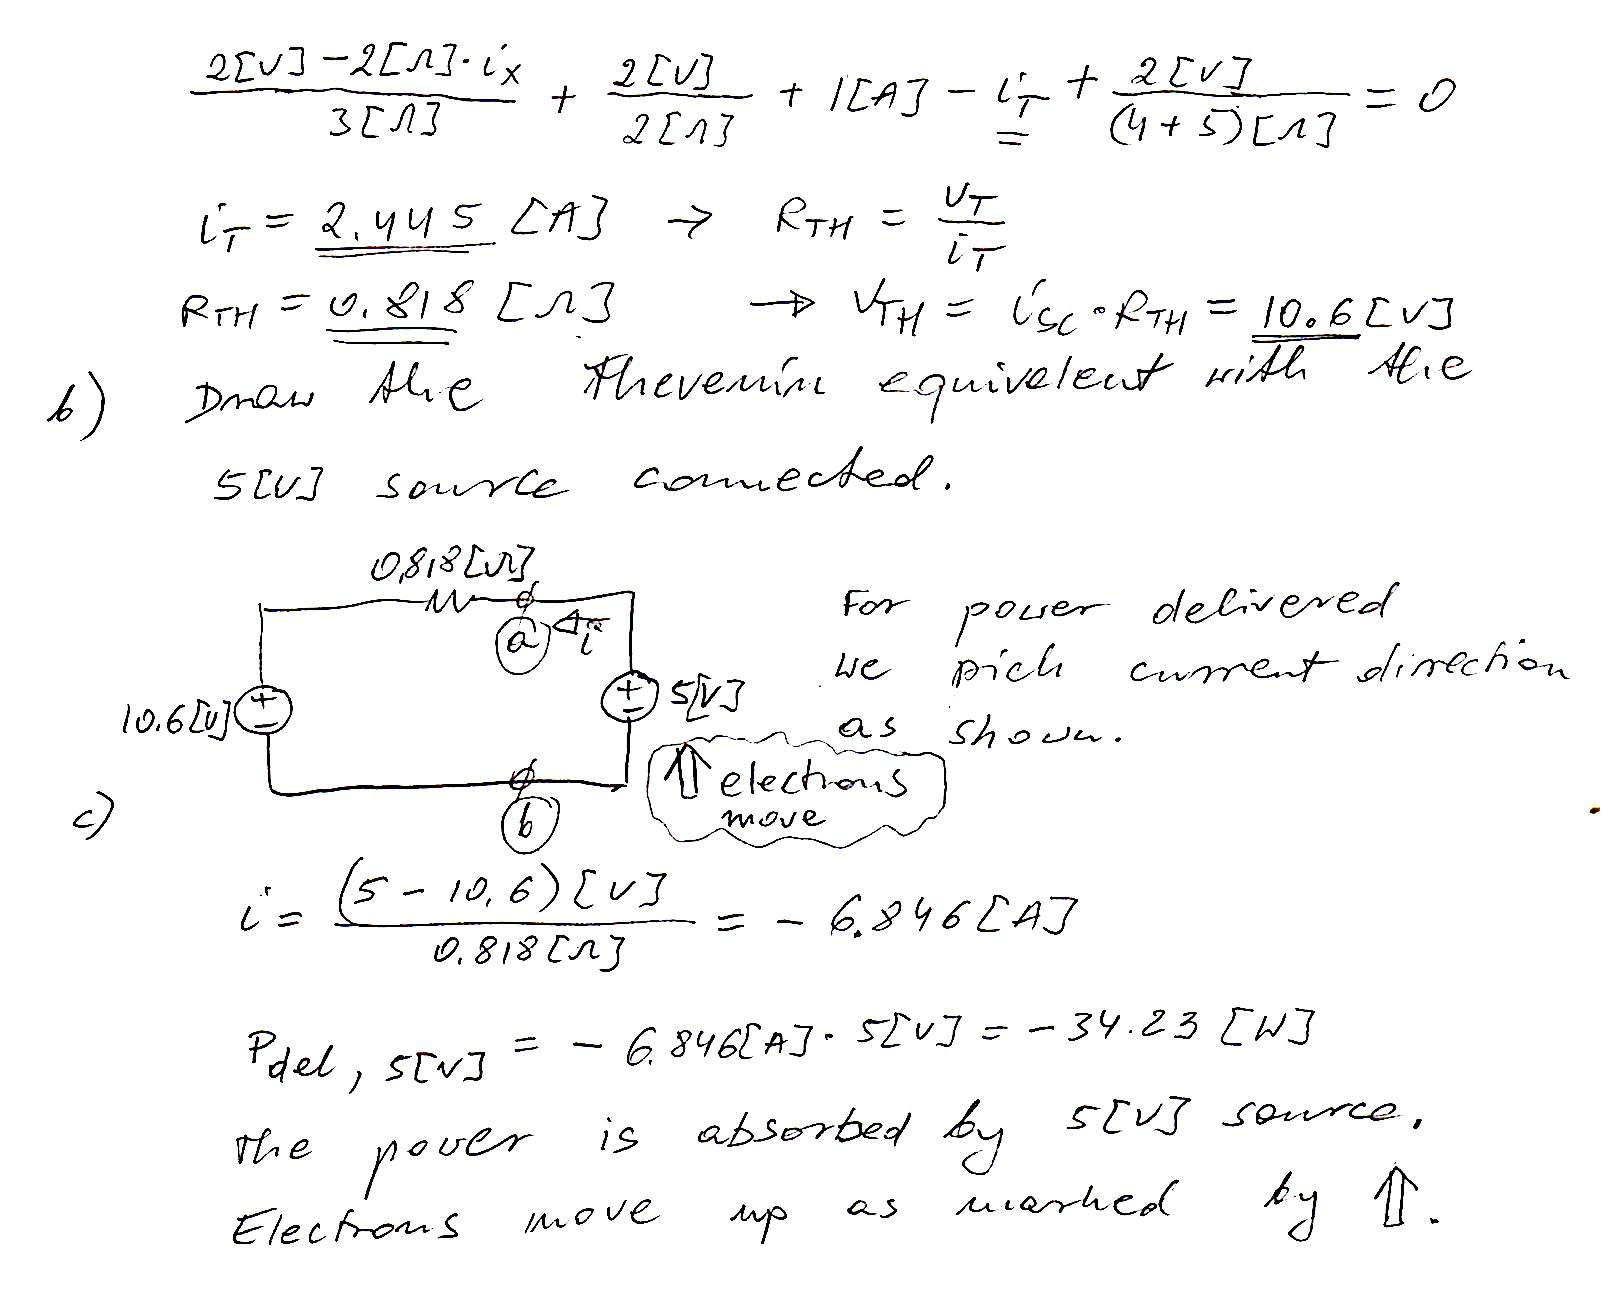 2[V] - 2[Ω]·iX / 3[Ω] + 2[V] / 2[Ω] + 1[A] - iT + 2[V] / (4+5)[Ω] = 0
iT = 2.445 [A] → RTH = vT / iT
RTH = 0.818 [Ω] → vTH = iSC · RTH = 10.6 [V]
b) Draw the Thevenin equivalent with the
5[V] source connected.
0.818[Ω]
a i
10.6[V] + - + - 5[V]
For power delivered
we pick current direction
as shown.
⇑ electrons
move
b
c)
i = (5 - 10.6)[V] / 0.818[Ω] = - 6.846[A]
Pdel, 5[V] = - 6.846[A] · 5[V] = -34.23 [W]
The power is absorbed by 5[V] source.
Electrons move up as marked by ⇑.